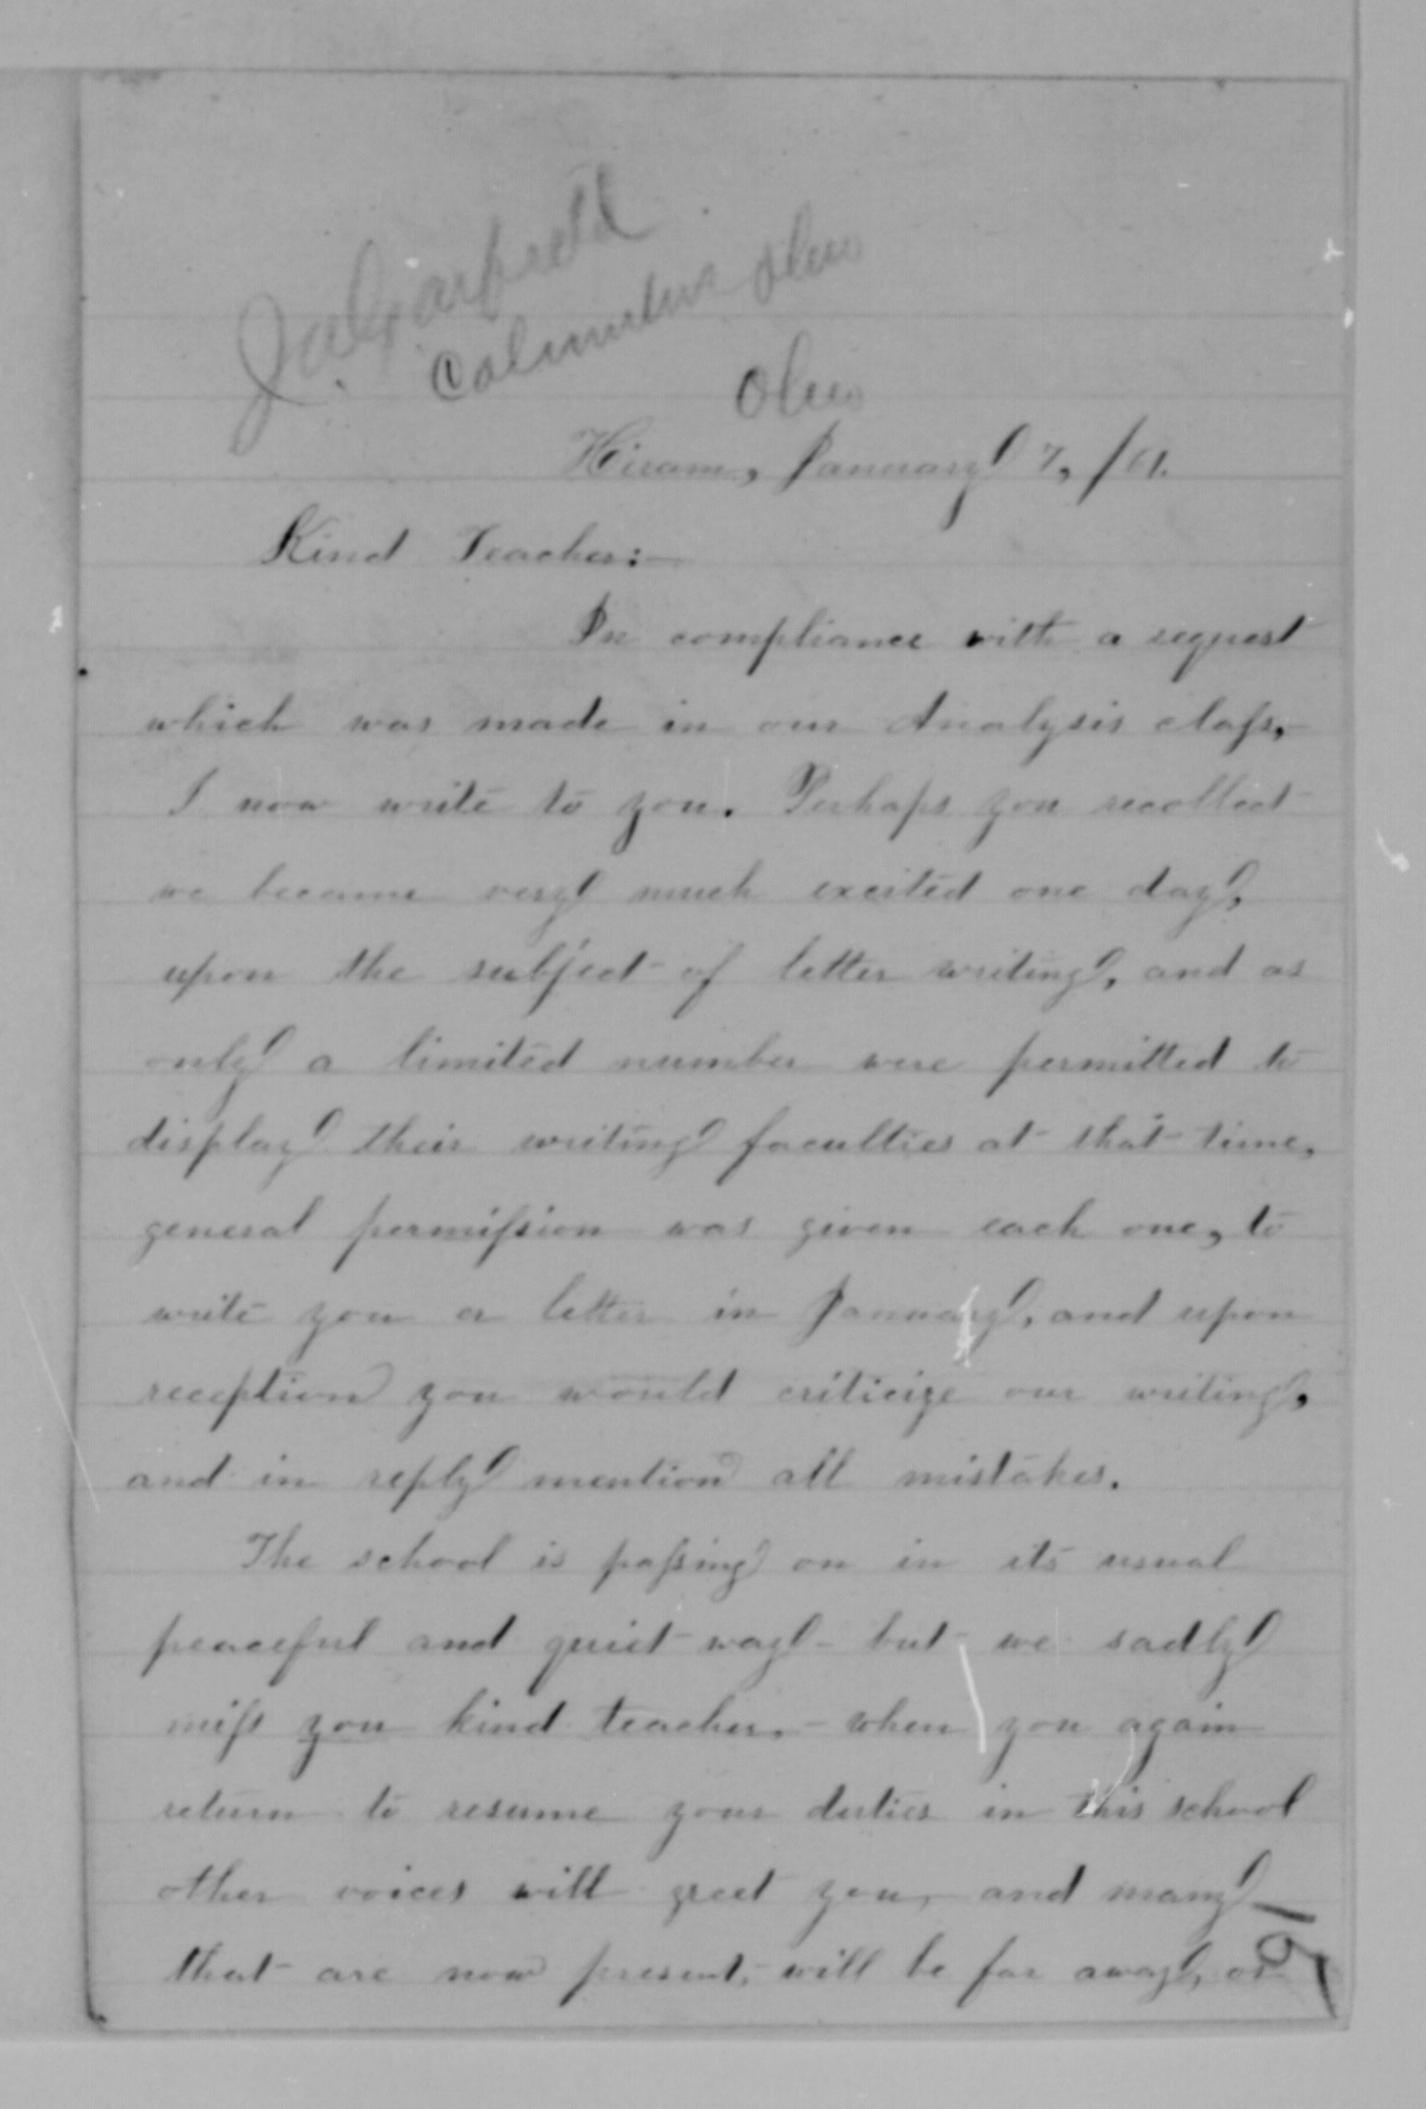 J. A. Garfield
Columbus Ohio
Ohio
Hiram, January 7, /61.
Kind Teacher:—
In compliance with a request
which was made in our Analysis class,
I now write to you. Perhaps you recollect
we became very much excited one day,
upon the subject of letter writing, and as
only a limited number were permitted to
display their writing faculties at that time,
general permission was given each one, to
write you a letter in January, and upon
reception you would criticize our writing,
and in reply mention all mistakes.
The school is passing on in its usual
peaceful and quiet way - but we sadly
miss you kind teacher, - when you again
return to resume your duties in this school
other voices will greet you, and many
that are now present, will be far away, or